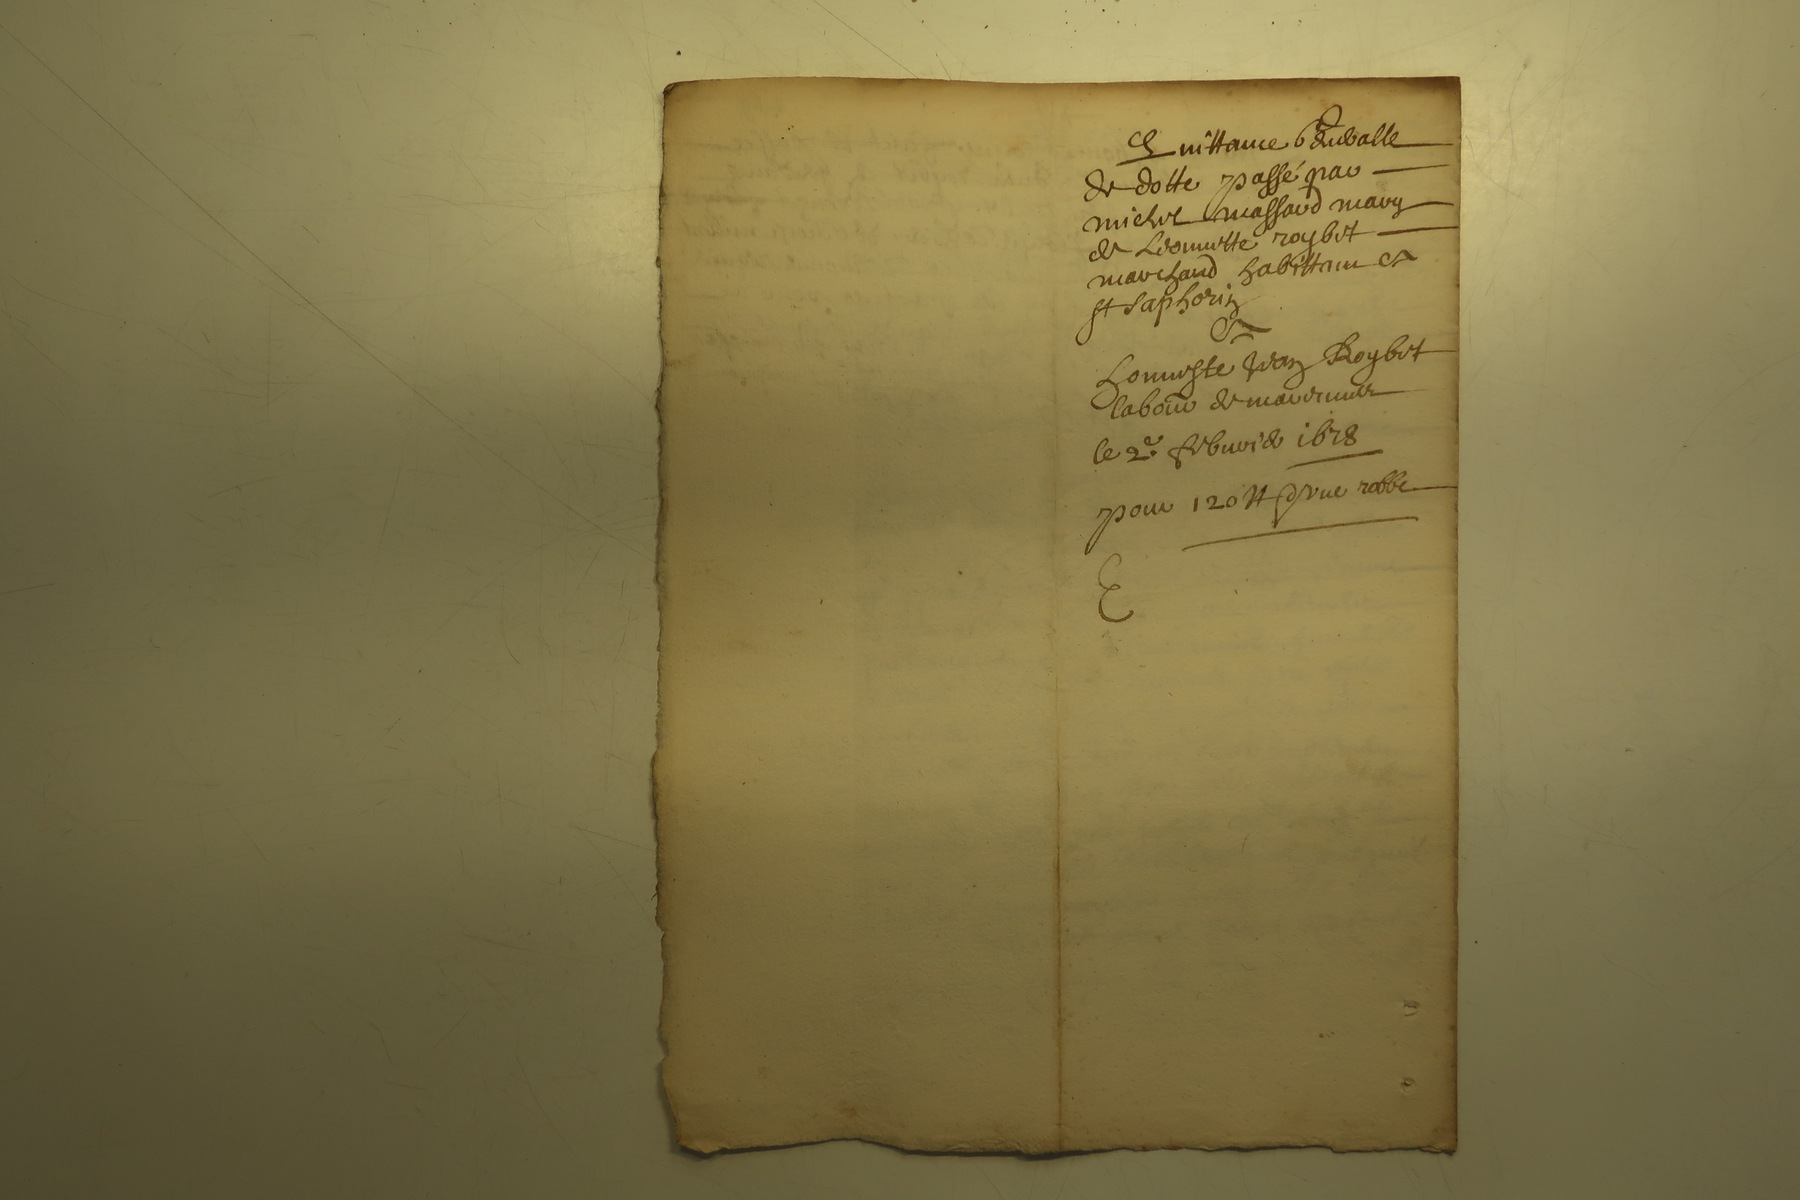 Quittance généralle
de dotte passé par
michel massard mary
de Leonnette roybet
marchand habittant a
st Saphorin
A
honneste Jean Roybet
labour de
le 2e febvrier 1678
pour 120 ₶ & une robbe
E